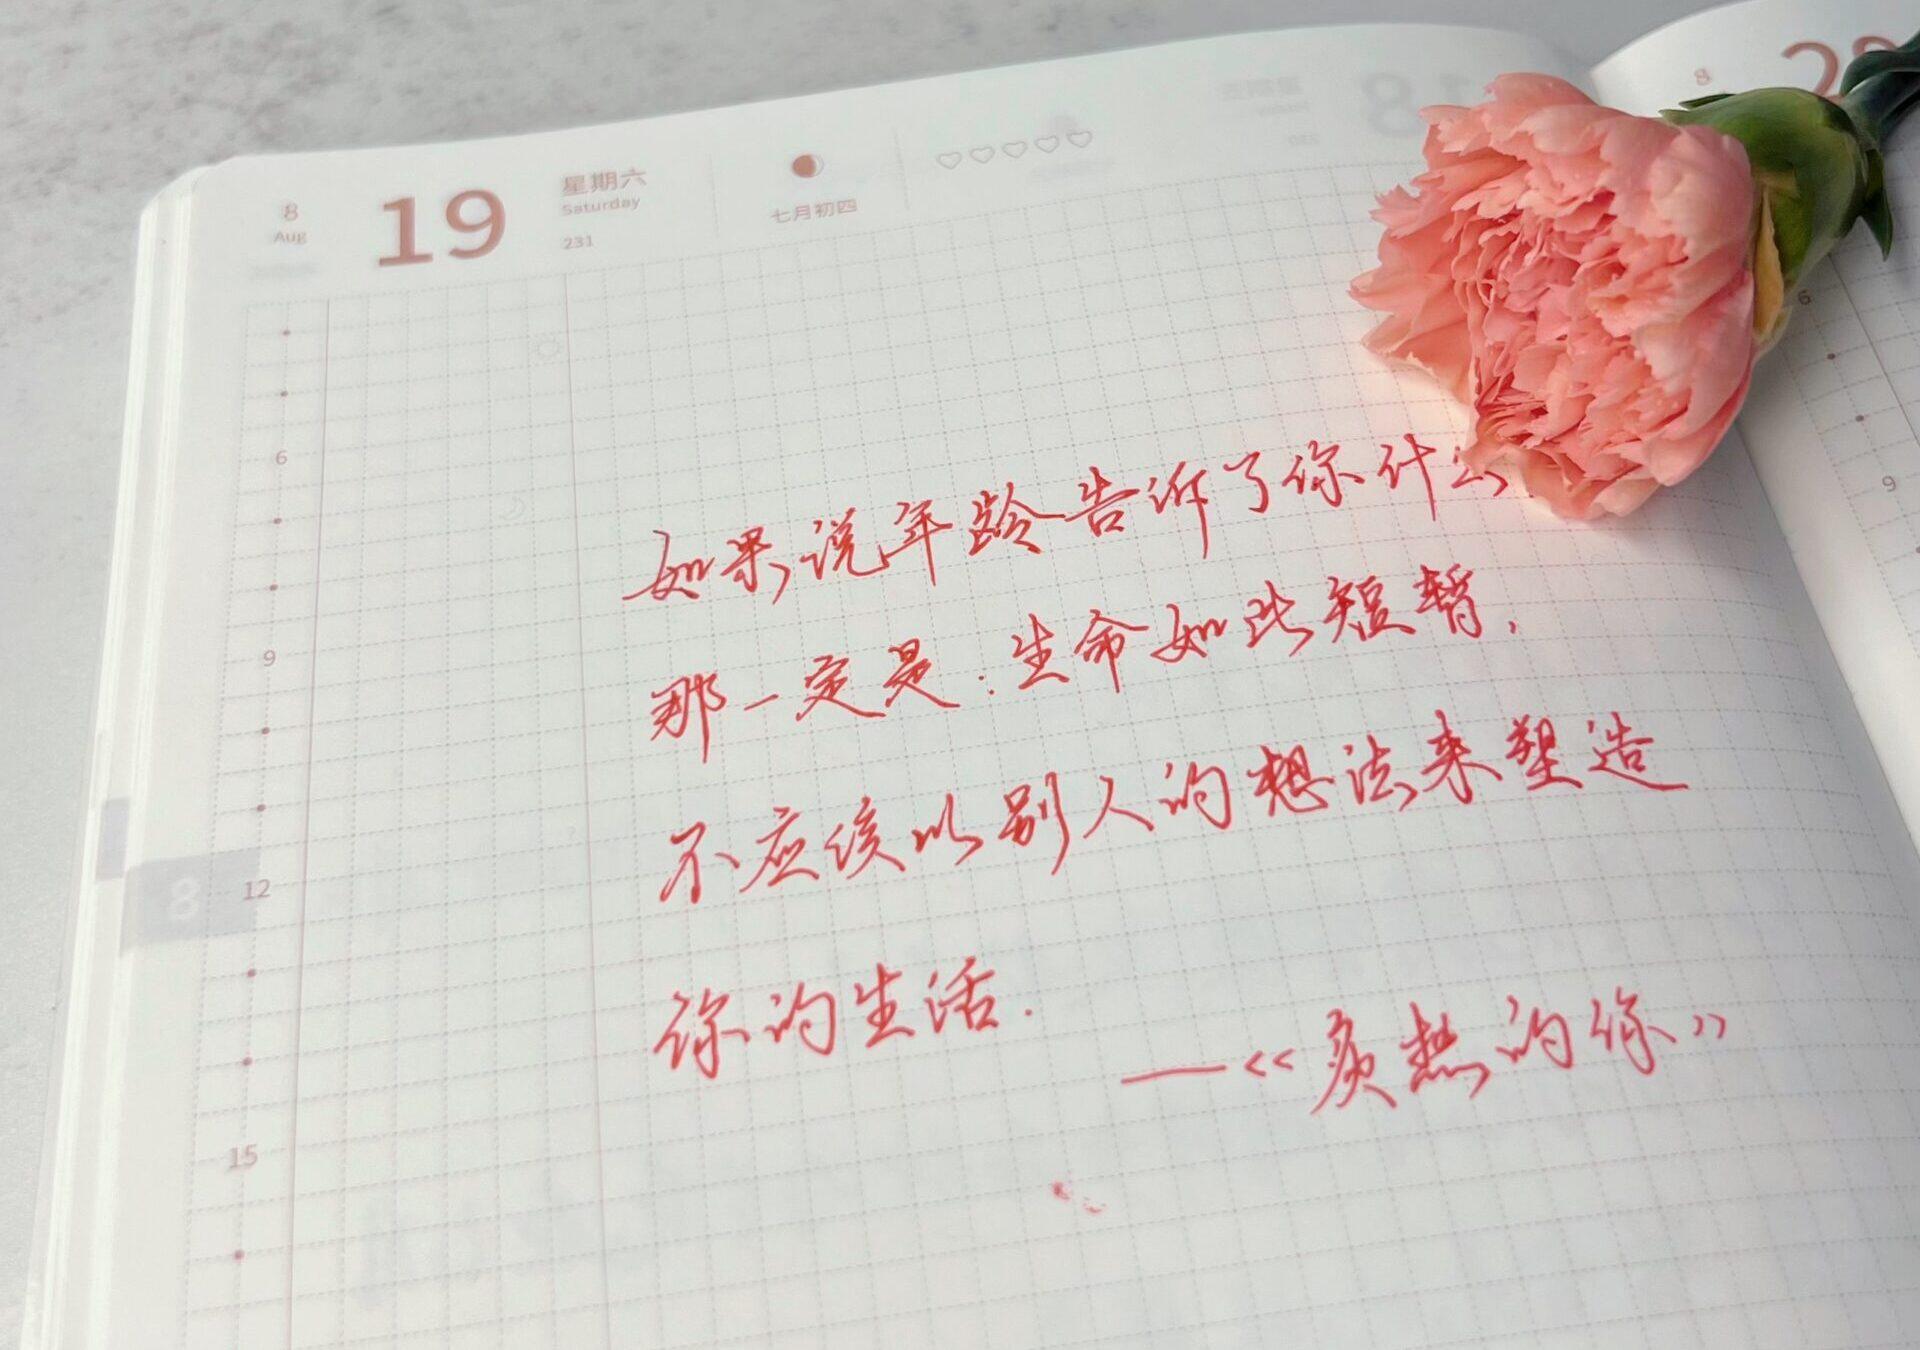 8
Aug
19
星期六
Saturday
231
七月初四
8
6
9
12
15
8
6
9
如果说年龄告诉了你什么
那一定是:生命如此短暂,
不应该以别人的想法来塑造
你的生活.
——《炙热的你》